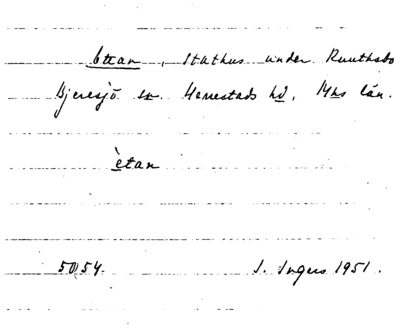 Ettan, stathus under Ruuthsbo
Bjeresjö sn. Herrestads hd, Mhs län.
ètan
50/54. I. Ingers 1951.